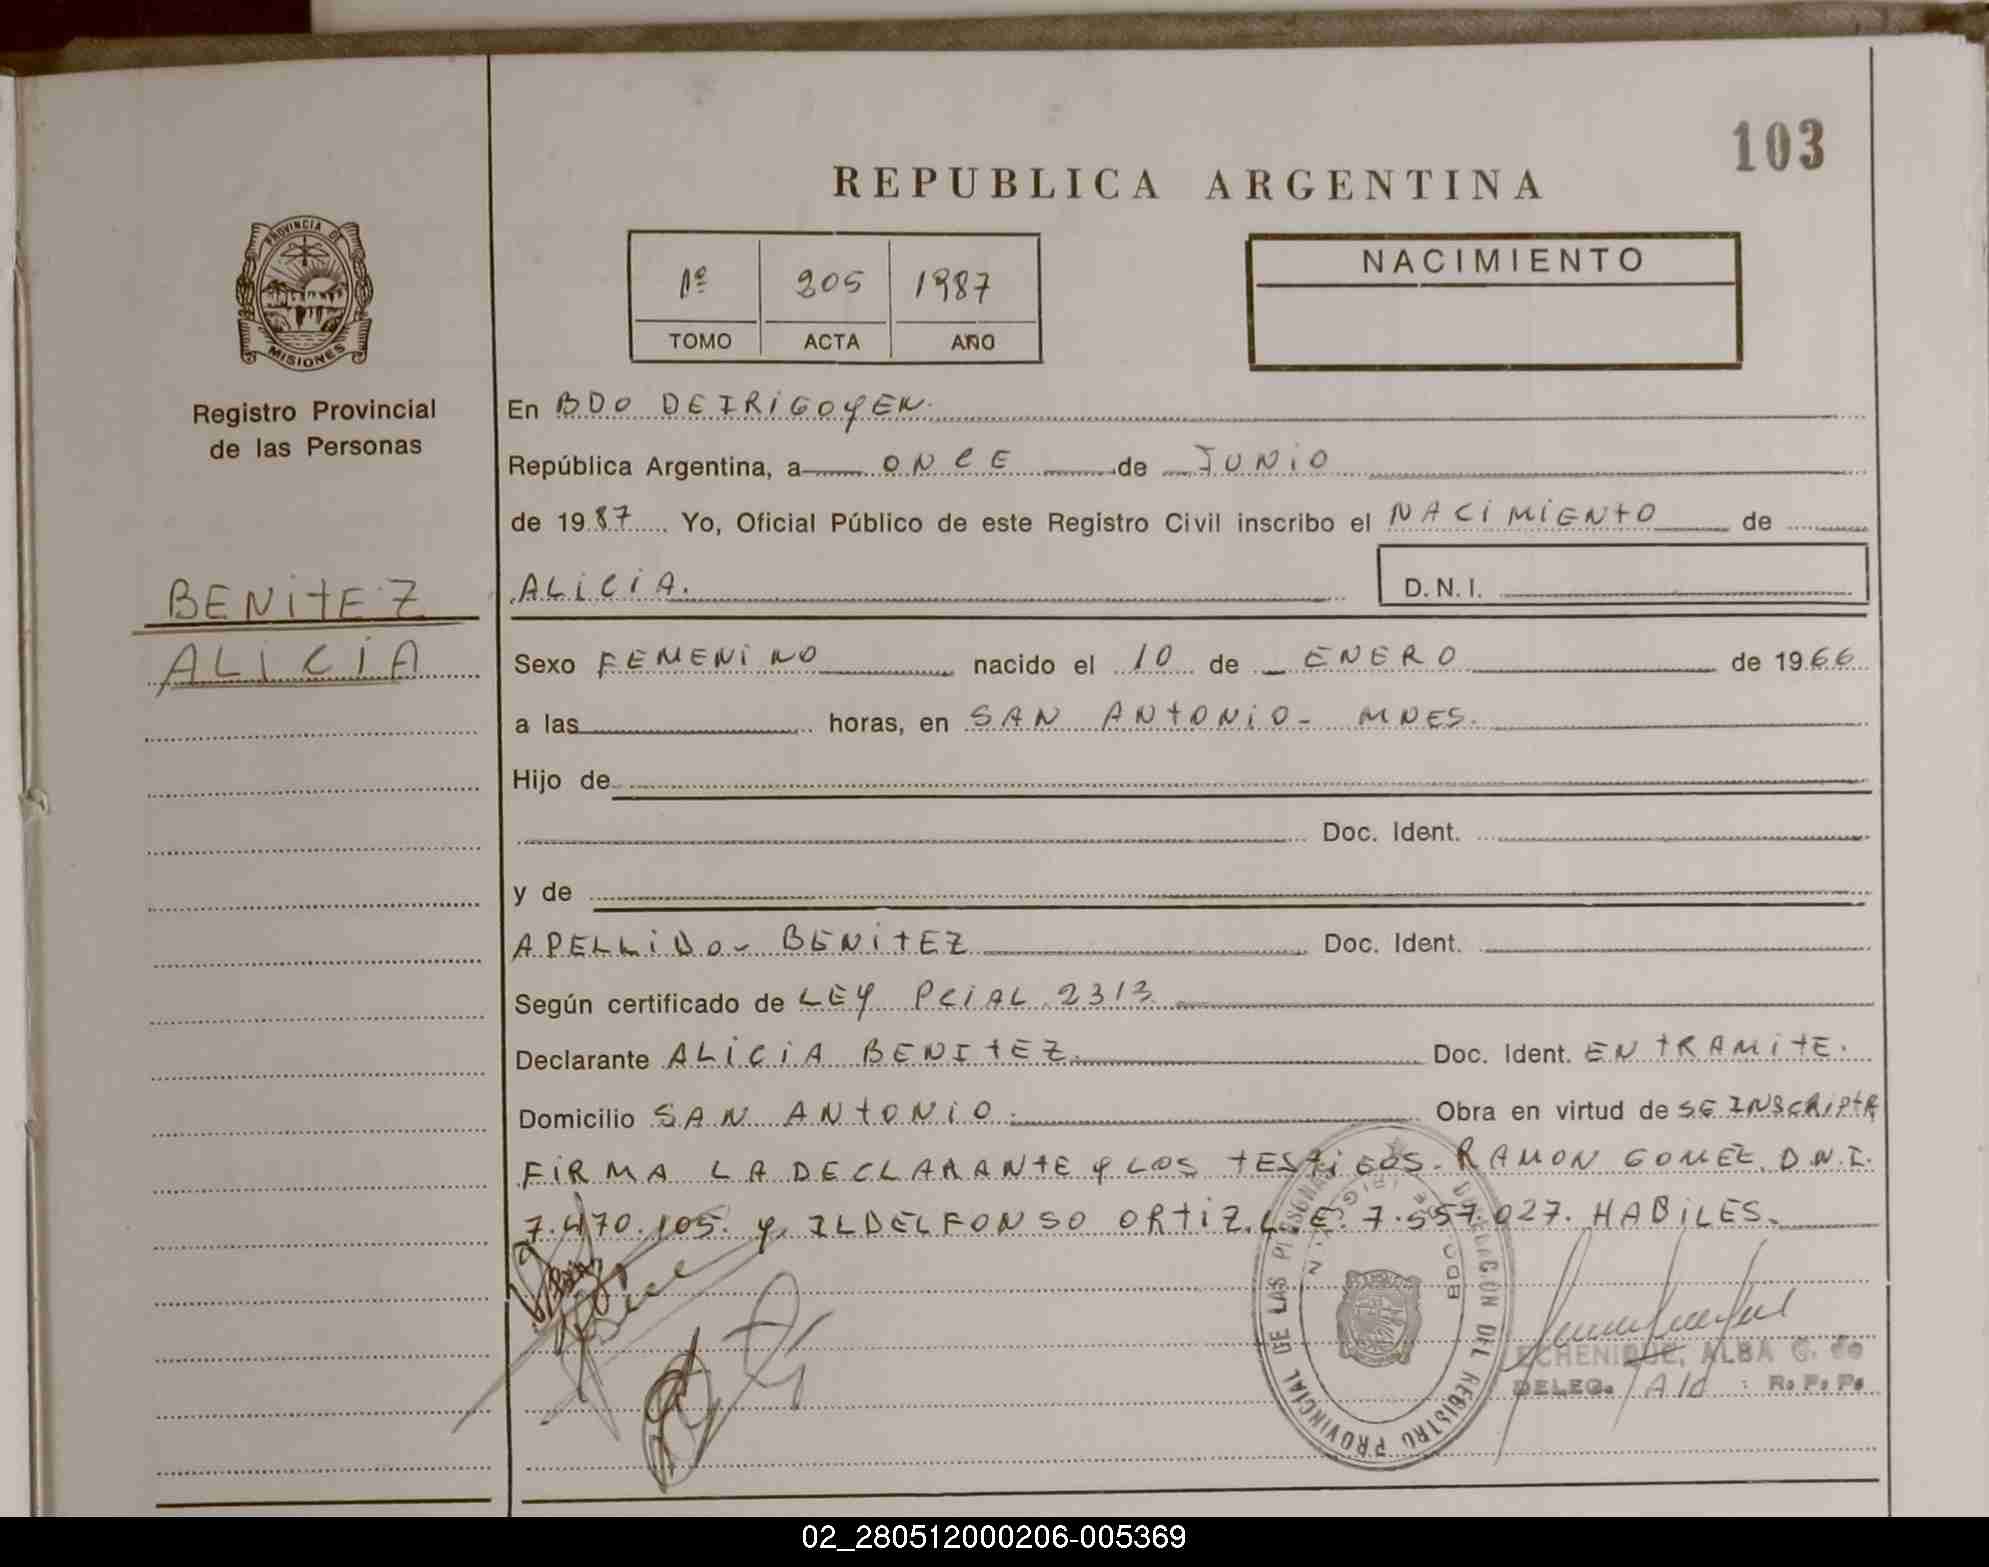 103
REPUBLICA ARGENTINA
PROVINCIA DE
MISIONES
Registro Provincial
de las Personas
1º 205 1987
TOMO ACTA AÑO
NACIMIENTO
En BDO DE IRIGOYEN.
República Argentina, a ONCE de JUNIO
de 1987 Yo, Oficial Público de este Registro Civil inscribo el NACIMIENTO de
ALICIA. D.N.I.
BENITEZ
ALICIA
Sexo FEMENINO nacido el 10 de ENERO de 1966
a las horas, en SAN ANTONIO - MNES.
Hijo de
Doc. Ident.
y de
APELLIDO - BENITEZ Doc. Ident.
Según certificado de LEY PCIAL 2313
Declarante ALICIA BENITEZ. Doc. Ident. EN TRAMITE.
Domicilio SAN ANTONIO. Obra en virtud de SE INSCRIPTA
FIRMA LA DECLARANTE Y LOS TESTIGOS. RAMON GOMEZ D.N.I.
7.470.105. Y ILDELFONSO ORTIZ. L.E. 7.557.027. HABILES.
DELEGACION DEL REGISTRO PROVINCIAL DE LAS PERSONAS
BDO DE IRIGOYEN
ECHENIQUE, ALBA G. de
DELEG. A/C R.P.P.
02_280512000206-005369